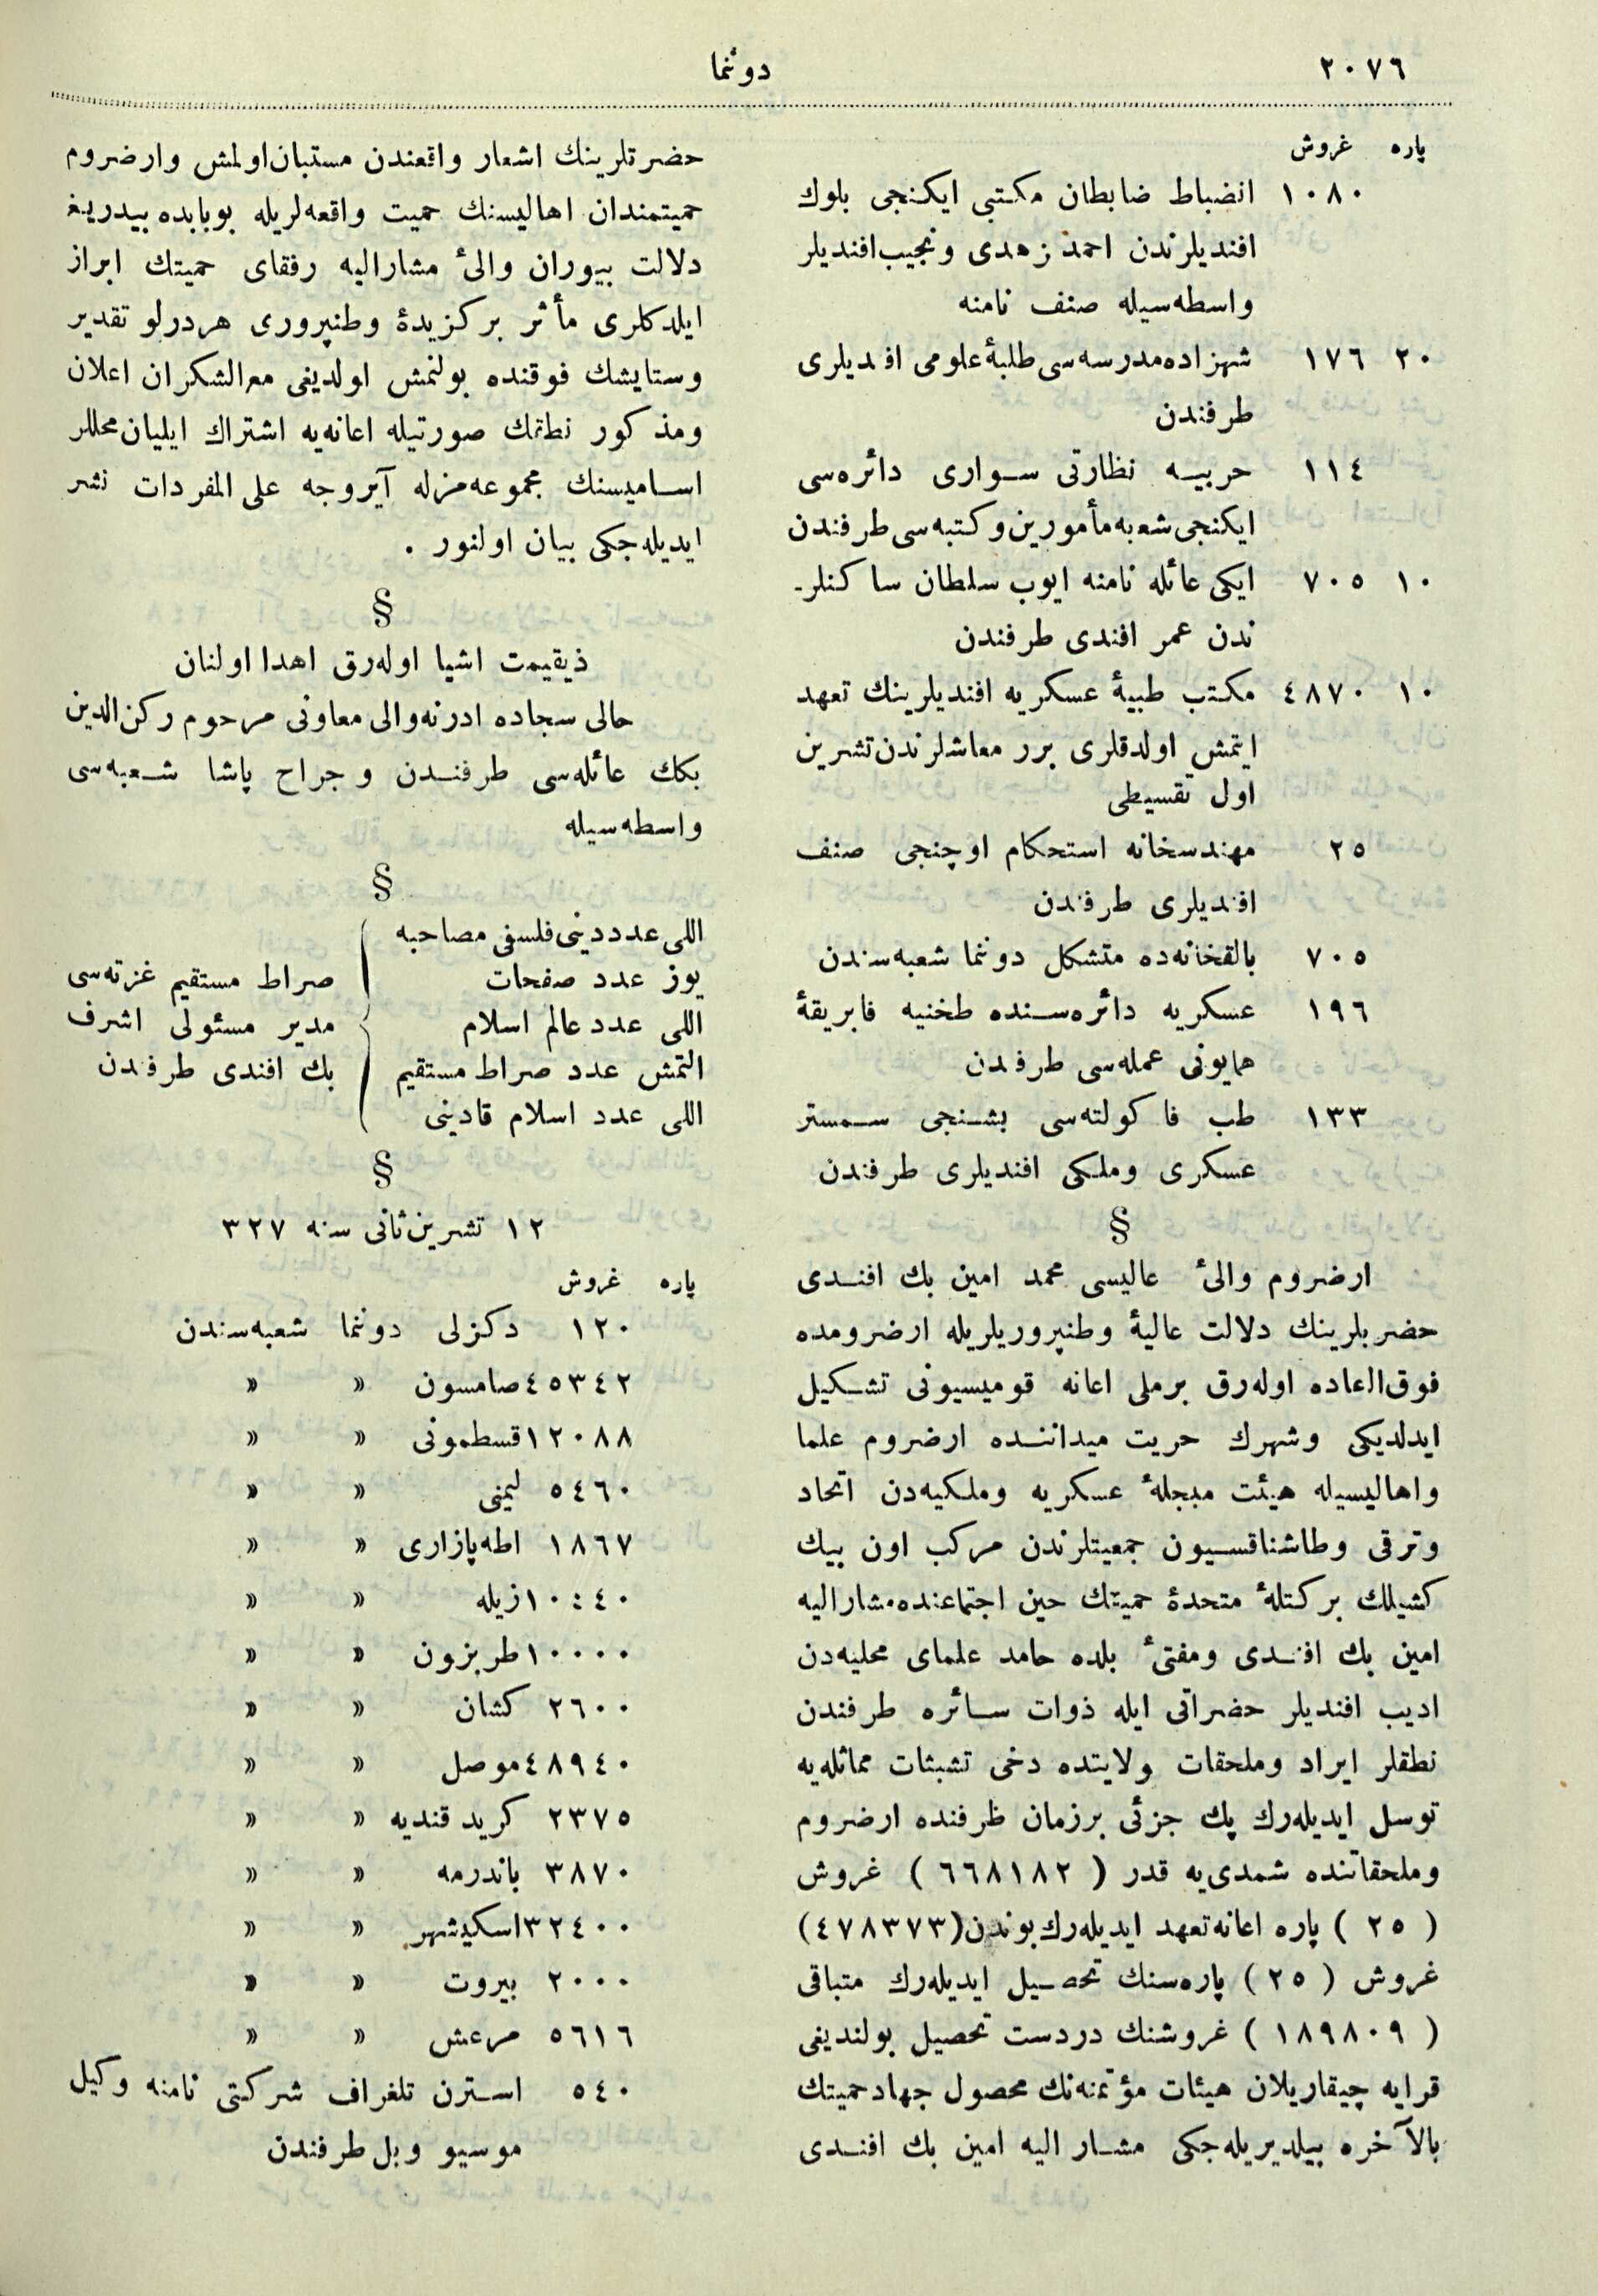 ٢٠٧٦
دوننما
پاره غروش
١٠٨٠ انضباط ضابطان مكتبی ایكنجی بلوك
افندیلرندن احمد زهدی و نجیب افندیلر
واسطه‌سیله صنف نامنه
٢٠ ١٧٦ شهزاده مدرسه‌سی طلبۀ علومی افندیلری
طرفندن
١١٤ حربیه نظارتی سواری دائره‌سی
ایكنجی شعبه مأمورین و كتبه‌سی طرفندن
١٠ ٧٠٥ ایكی عائله نامنه ایوب سلطان ساكنلر-
ندن عمر افندی طرفندن
١٠ ٤٨٧٠ مكتب طبیۀ عسكریه افندیلرینك تعهد
ایتمش اولدقلری برر معاشلرندن تشرین
اول تقسیطی
٢٥ مهندسخانه استحكام اوچنجی صنف
افندیلری طرفندن
٧٠٥ بالقخانه‌ده متشكل دوننما شعبه‌سندن
١٩٦ عسكریه دائره‌سنده طخنیه فابریقۀ
همایونی عمله‌سی طرفدن
١٣٣ طب فاكولته‌سی بشنجی سمستر
عسكری وملكی افندیلری طرفندن
§
ارضروم والیٔ عالیسی محمد امین بك افندی
حضربلرینك دلالت عالیۀ وطنپروریلریله ارضرومده
فوق‌العاده اوله‌رق برملی اعانه قومیسیونی تشكیل
ایدلدیكی وشهرك حریت میداننده ارضروم علما
واهالیسیله هیئت مبجلۀ عسكریه وملكیه‌دن اتحاد
وترقی وطاشناقسیون جمعیتلرندن مركب اون بیك
كشیلك بركتلۀ متحدۀ حمیتك حین اجتماعنده مشارالیه
امین بك افندی ومفتیٔ بلده حامد علمای محلیه‌دن
ادیب افندیلر حضراتی ایله ذوات سائره طرفندن
نطقلر ایراد وملحقات ولایتده دخی تشبثات مماثله‌یه
توسل ایدیله‌رك پك جزئی برزمان ظرفنده ارضروم
وملحقاتنده شمدی‌یه قدر ( ٦٦٨١٨٢ ) غروش
( ٢٥ ) پاره اعانه تعهد ایدیله‌رك بوندن (٤٧٨٣٧٣)
غروش ( ٢٥ ) پاره‌سنك تحصیل ایدیله‌رك متباقی
( ١٨٩٨٠٩ ) غروشنك دردست تحصیل بولندیغی
قرایه چیقاریلان هیئات مؤتمنه‌نك محصول جهاد حمیتك
بالآخره بیلدیریله‌جكی مشار الیه امین بك افندی
حضرتلرینك اشعار واقعندن مستبان اولمش وارضروم
حمیتمندان اهالیسنك حمیت واقعه‌لریله بوبابده بیدریغ
دلالت بیوران والیٔ مشارالیه رفقای حمیتك ابراز
ایلدكلری مأثر بركزیدۀ وطنپروری هردرلو تقدیر
وستایشك فوقنده بولنمش اولدیغی مع الشكران اعلان
ومذكور نطقك صورتیله اعانه‌یه اشتراك ایلیان محللر
اسامیسنك مجموعه‌مزله آیروجه علی المفردات نشر
ایدیله‌جكی بیان اولنور .
§
ذیقیمت اشیا اوله‌رق اهدا اولنان
حالی سجاده ادرنه والی معاونی مرحوم ركن‌الدین
بكك عائله‌سی طرفندن و جراح پاشا شعبه‌سی
واسطه‌سیله
§
اللی عدد دینی فلسفی مصاحبه
یوز عدد صفحات
اللی عدد عالم اسلام
التمش عدد صراط مستقیم
اللی عدد اسلام قادینی
صراط مستقیم غزته‌سی
مدیر مسئولی اشرف
بك افندی طرفدن
§
١٢ تشرین‌ثانی سنه ٣٢٧
پاره غروش
١٢٠ دكزلی دوننما شعبه‌سندن
٤٥٣٤٢ صامسون » »
١٢٠٨٨ قسطمونی » »
٥٤٦٠ لیمنی » »
١٨٦٧ اطه‌پازاری » »
١٠٤٤٠ زیله » »
١٠٠٠٠ طربزون » »
٢٦٠٠ كشان » »
٤٨٩٤٠ موصل » »
٢٣٧٥ كرید قندیه » »
٣٨٧٠ باندرمه » »
٣٢٤٠٠ اسكیشهر » »
٢٠٠٠ بیروت » »
٥٦١٦ مرعش » »
٥٤٠ استرن تلغراف شركتی نامنه وكیل
موسیو وبل طرفندن